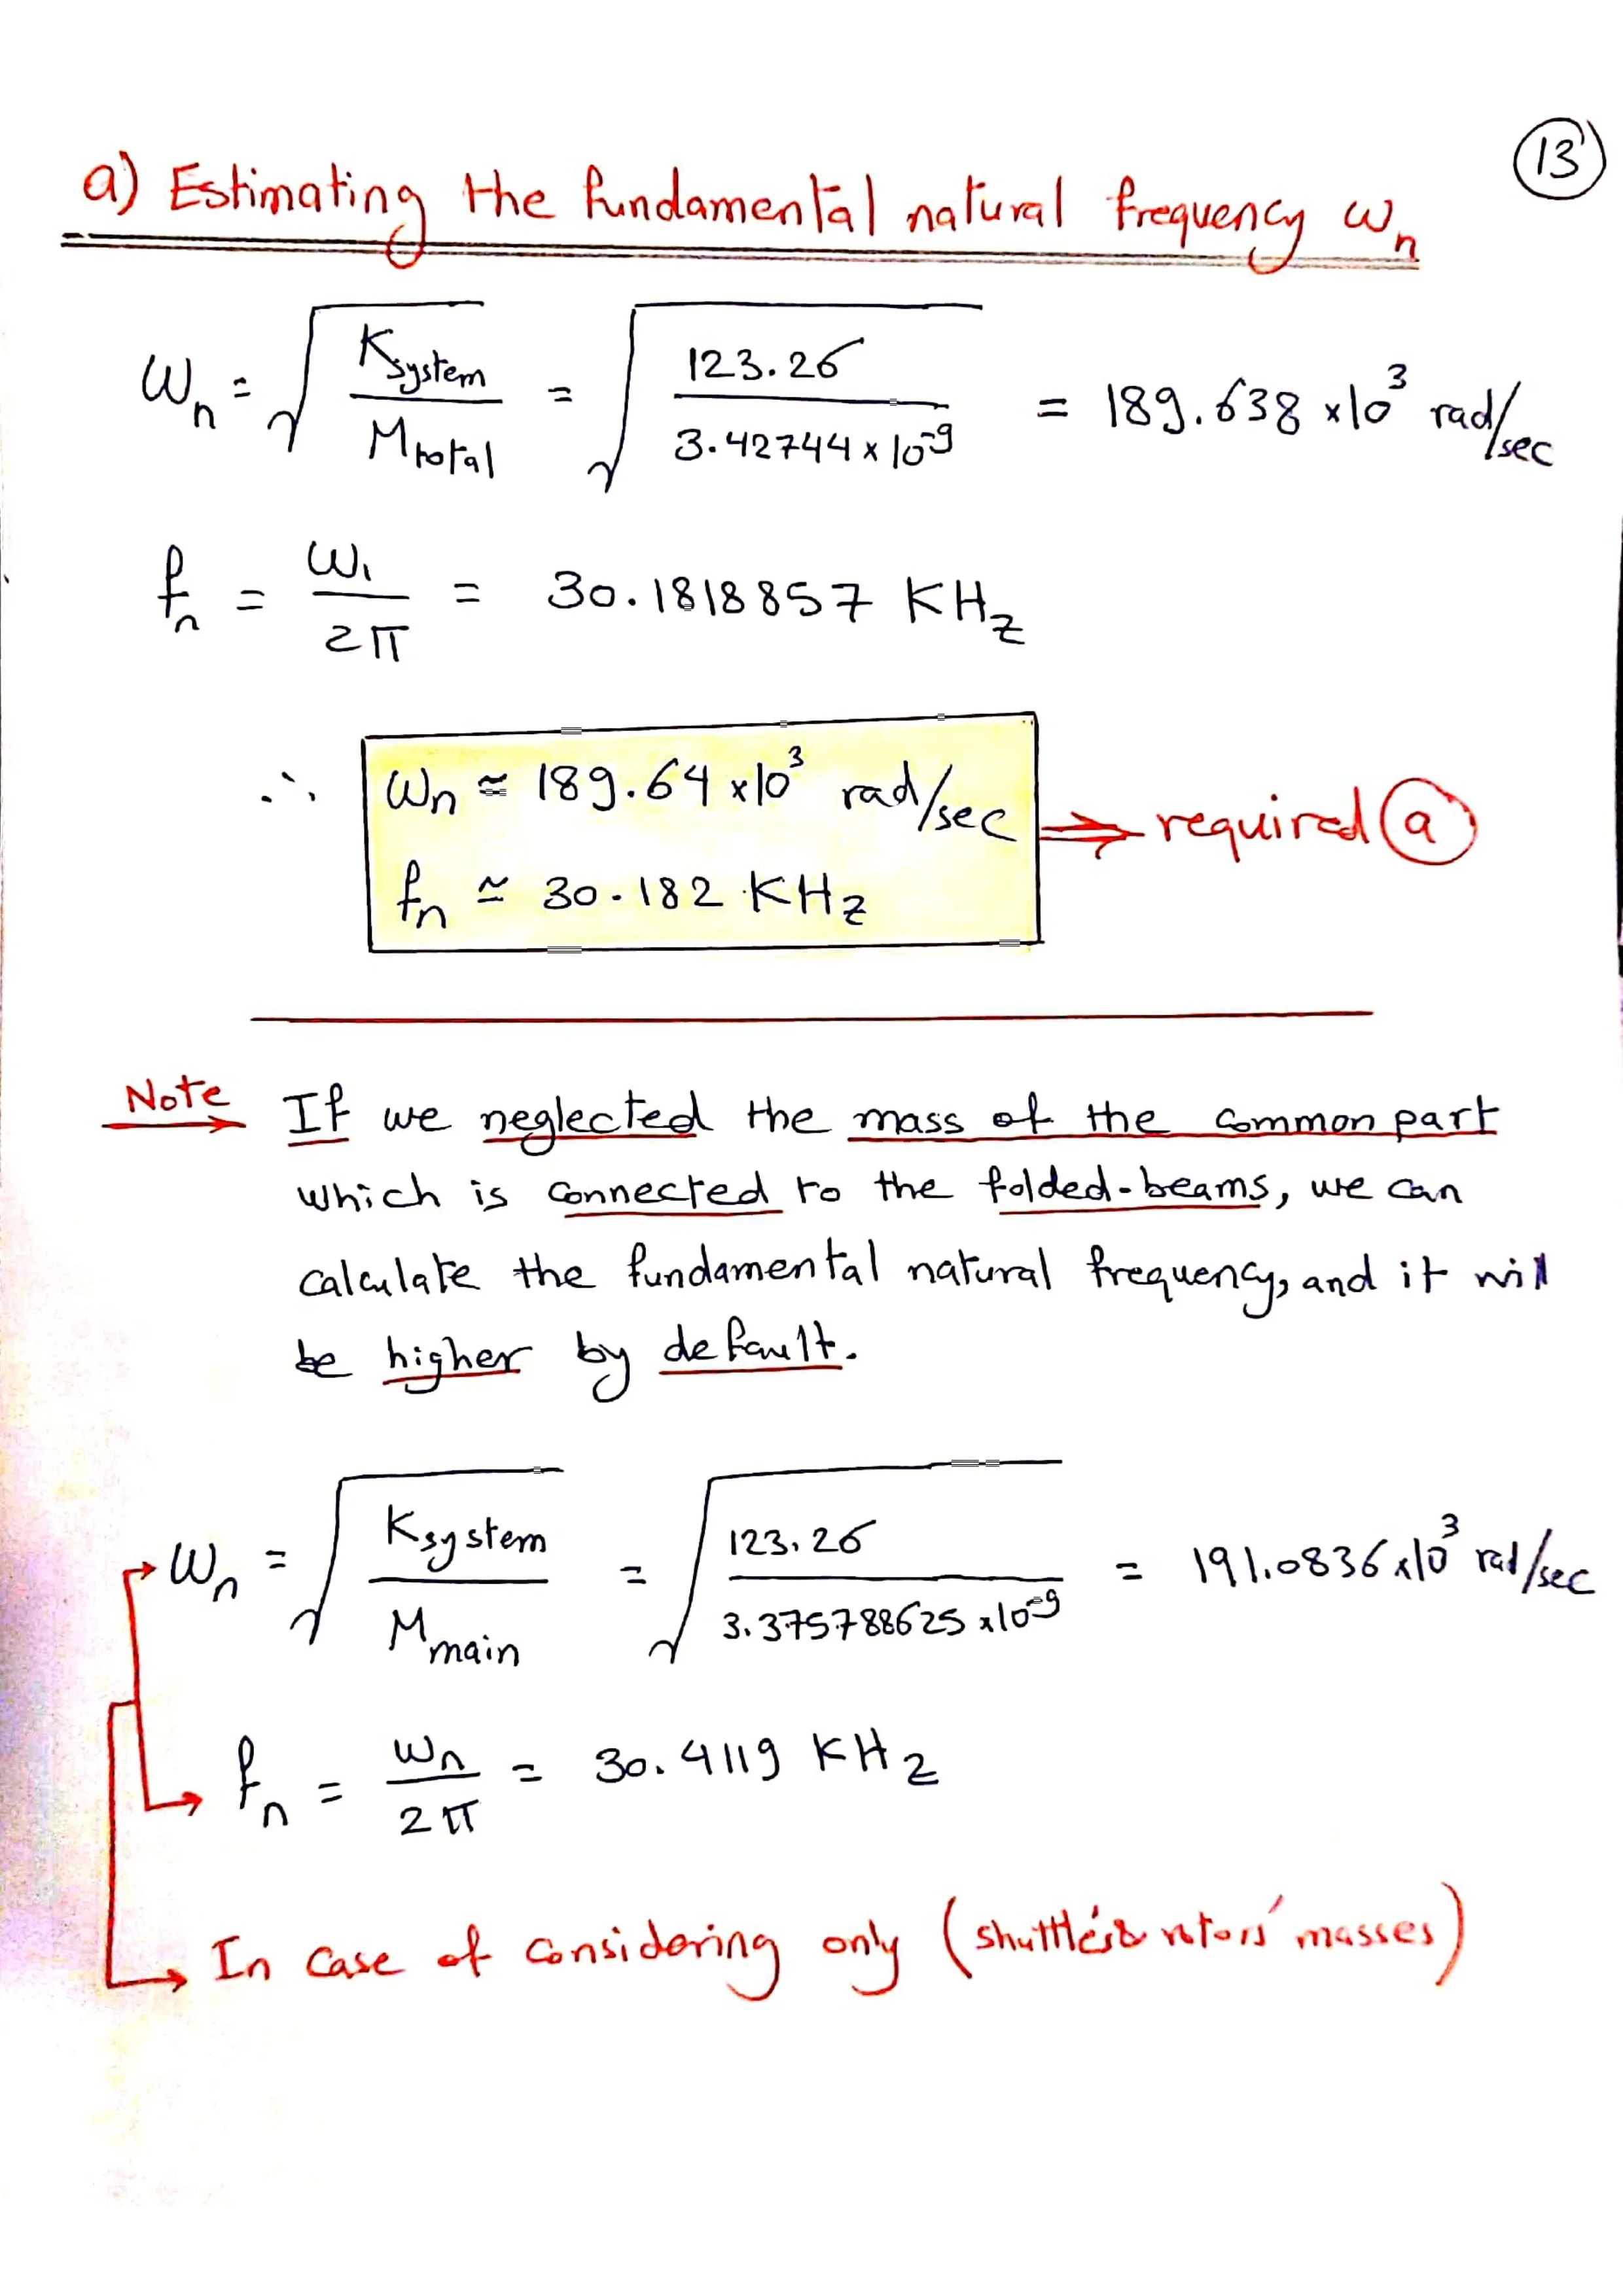 13
a) Estimating the fundamental natural frequency ωn
ωn = √(Ksystem / Mtotal) = √(123.26 / 3.42744 x 10^-9) = 189.638 x10^3 rad/sec
fn = ω1 / 2π = 30.1818857 KHz
∴ ωn ≃ 189.64 x10^3 rad/sec ⇒ required a
fn ≃ 30.182 KHz
Note If we neglected the mass of the common part
which is connected to the folded-beams, we can
calculate the fundamental natural frequency, and it will
be higher by default.
ωn = √(Ksystem / Mmain) = √(123.26 / 3.375788625 x10^-9) = 191.0836 x10^3 rad/sec
fn = ωn / 2π = 30.4119 KHz
In case of considering only (shuttle's & rotors' masses)